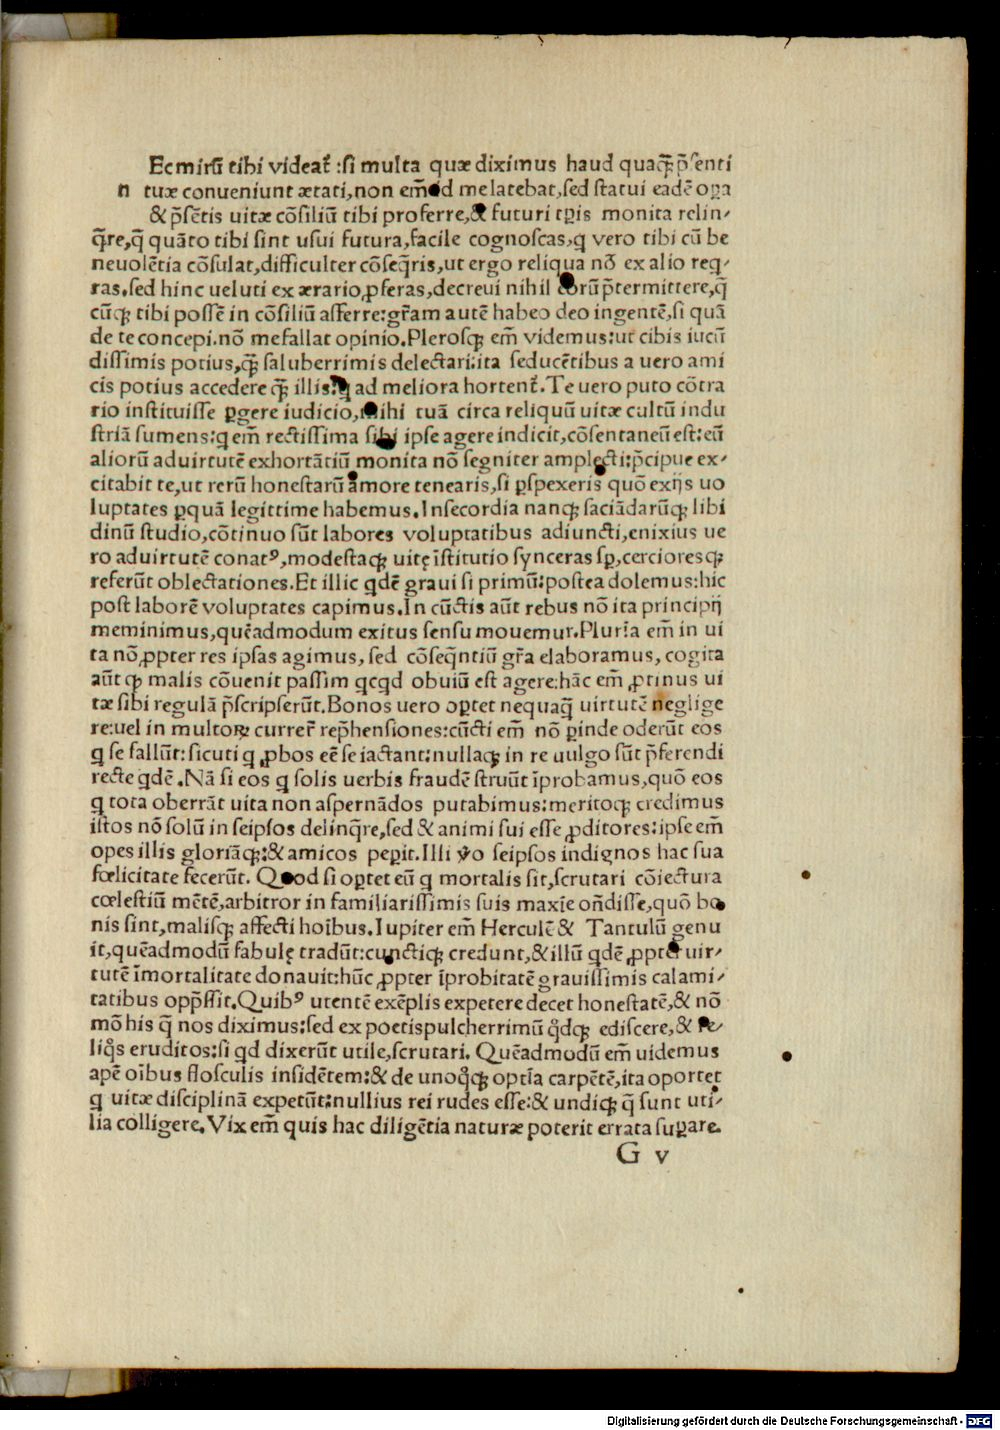 Ec mirū tibi videat᷑ :si multa quæ diximus haud quaq̄ꝫ p̄senti
n tuæ conveniunt ætati,non em̄ id me latebat,sed statui eadē opa
& p̄sētis uitæ cōsiliū tibi proferre,& futuri tꝑis monita relin⸗
q̄re,q̄ quāto tibi sint usui futura,facile cognoscas,q vero tibi cū be
neuolētia cōsulat,difficulter cōseq̄ris,ut ergo reliqua nō ex alio req⸗
ras.sed hinc ueluti ex ærario,ꝓferas,decreui nihil eorū p̄termittere,q̄
cūqꝫ tibi possē in cōsiliū afferre:gr̄am autē habeo deo ingentē,si quā
de te concepi.nō me fallat opinio.Plerosqꝫ em̄ videmus:ut cibis iucū
dissimis potius,q̄ꝫ saluberrimis delectari:ita seducētibus a uero ami
cis potius accedere q̄ꝫ illis:q ad meliora hortent᷑.Te uero puto cōtra
rio instituisse ꝑgere iudicio,mihi tuā circa reliquū uitæ cultū indu
striā sumens:q em̄ rectissima sibi ipse agere indicit,cōsentaneū est:eū
aliorū ad uirtutē exhortātiū monita nō segniter amplecti:p̄cipue ex⸗
citabit te,ut rerū honestarū amore tenearis,si ꝑspexeris quō ex ijs uo
luptates ꝑquā legittime habemus.In secordia nanqꝫ saciādarūqꝫ libi
dinū studio,cōtinuo sūt labores voluptatibus adiuncti,enixius ue
ro ad uirtutē conatꝰ,modestaqꝫ uitę īstitutio synceras sꝑ,cercioresqꝫ
referūt oblectationes.Et illic qdē graui si primū:postea dolemus:hic
post laborē voluptates capimus.In cūctis aūt rebus nō ita principij
meminimus,quēadmodum exitus sensu mouemur.Plurīa em̄ in ui
ta nō,ꝓpter res ipsas agimus, sed cōseq̄ntiū gr̄a elaboramus, cogita
aūt qꝫ malis cōuenit passim qcqd obuiū est agere:hāc em̄ ꝓtinus ui
tæ sibi regulā p̄scripserūt.Bonos uero oꝑtet nequaq̄ uirtutē neglige
re:uel in multoꝝ currer̄ rep̄hensiones:cūcti em̄ nō ꝑinde oderūt eos
q se fallūt: sicuti q ꝓbos eē se iactant:nullaqꝫ in re uulgo sūt p̄ferendi
recte qdē .Nā si eos q solis uerbis fraudē struūt īprobamus,quō eos
q tota oberrāt uita non aspernādos putabimus:meritoqꝫ credimus
istos nō solū in seipsos delinq̄re,sed & animi sui esse ꝓditores:ipse em̄
opes illis gloriāqꝫ:& amicos peꝑit.Illi v̊o seipsos indignos hac sua
fœlicitate fecerūt. Quod si oꝑtet eū q mortalis sit,scrutari cōiectura
cœlestiū mētē,arbitror in familiarissimis suis maxīe on̄disse,quō bo
nis sint,malisqꝫ affecti hoībus.Iupiter em̄ Herculē & Tantulū genu
it,quēadmodū fabulę tradūt:cunctiqꝫ credunt,& illū qdē ꝓpter uir⸗
tutē īmortalitate donauit:hūc ꝓpter īprobitatē grauissimis calami⸗
tatibus opp̄ssit.Quibꝰ utentē exēplis expetere decet honestatē,& nō
mō his q̄ nos diximus:sed ex poetis pulcherrimū qd̊qꝫ ediscere,& re⸗
liq̊s eruditos:si qd dixerūt utile,scrutari. Quēadmodū em̄ uidemus
apē oībus flosculis insidētem:& de unoq̊qꝫ optīa carpētē,ita oportet
q uitæ disciplinā expetūt:nullius rei rudes esse:& undiqꝫ q̄ sunt uti⸗
lia colligere.Vix em̄ quis hac diligētia naturæ poterit errata suꝑare.
G v
Digitalisierung gefördert durch die Deutsche Forschungsgemeinschaft - DFG